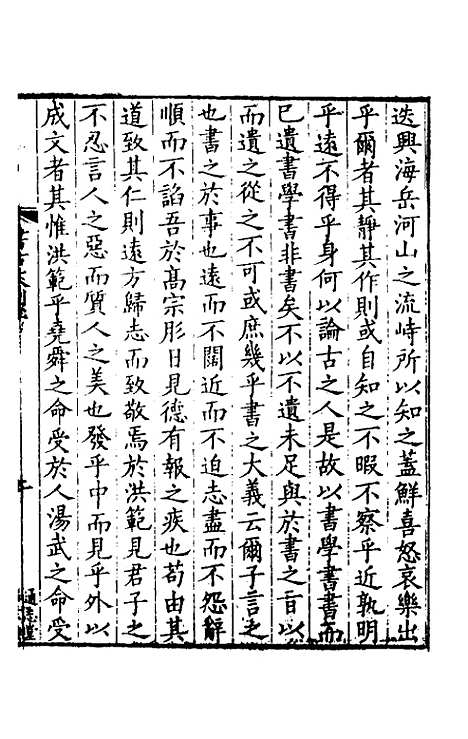 迭興海岳河山之流峙所以知之蓋鮮喜怒哀樂出
乎爾者其靜其作則或自知之不暇不察乎近孰明
乎遠不得乎身何以論古之人是故以書學書書而
已遺書學書非書矣不以不遺未足與於書之旨以
而遺之從之不可或庶幾乎書之大義云爾子言之
也書之於事也遠而不闊近而不迫志盡而不怨辭
順而不諂吾於髙宗肜日見德有報之疾也苟由其
道致其仁則遠方歸志而致敬焉於洪範見君子之
不忍言人之惡而質人之美也發乎中而見乎外以
成文者其惟洪範乎堯舜之命受於人湯武之命受
通志堂